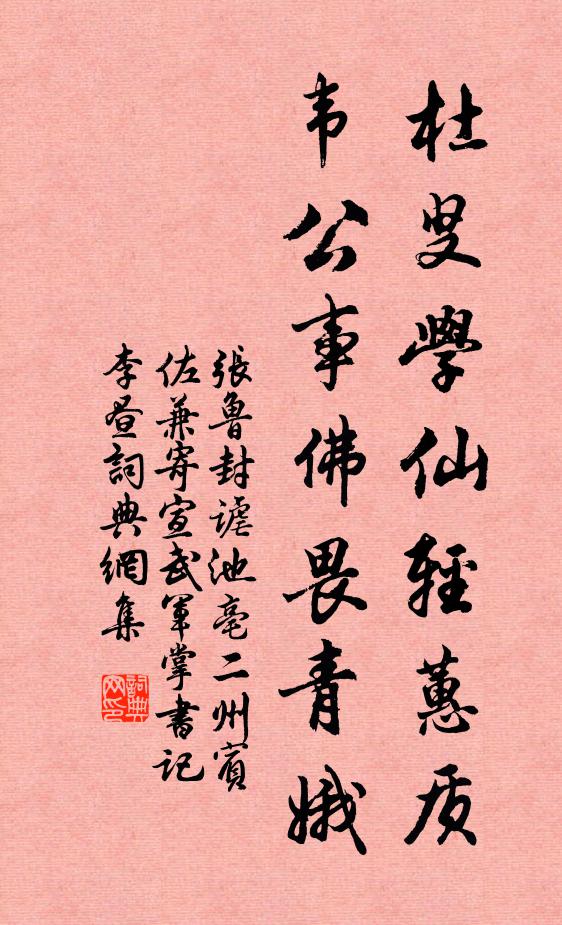 杜叟學仙輕蕙质
韦公事佛畏青娥
張魯封謔池亳二州賓
佐兼寄宣武軍掌書記
李昼詞典網集
詞典网印